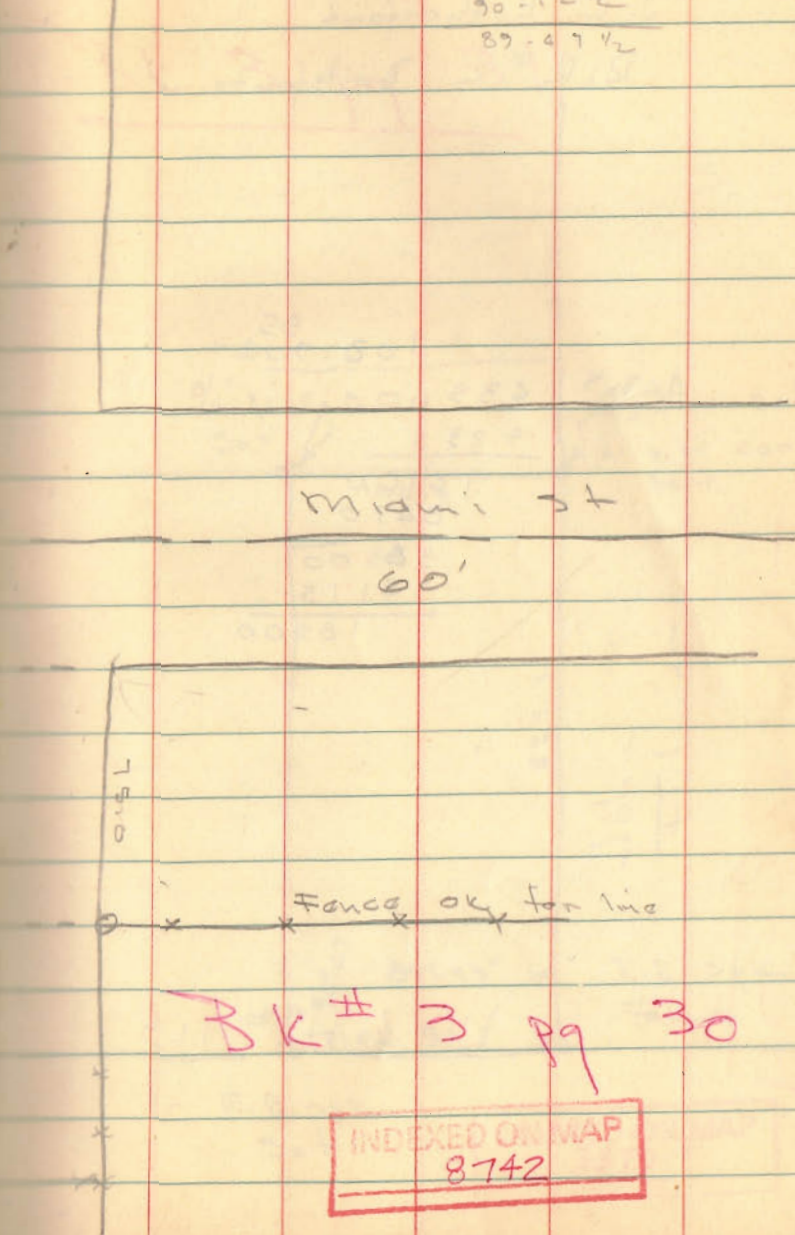 89-49 1/2
Miami St
60'
75.0
Fence ok for line
BK # 3 pg 30
INDEXED ON MAP
8742